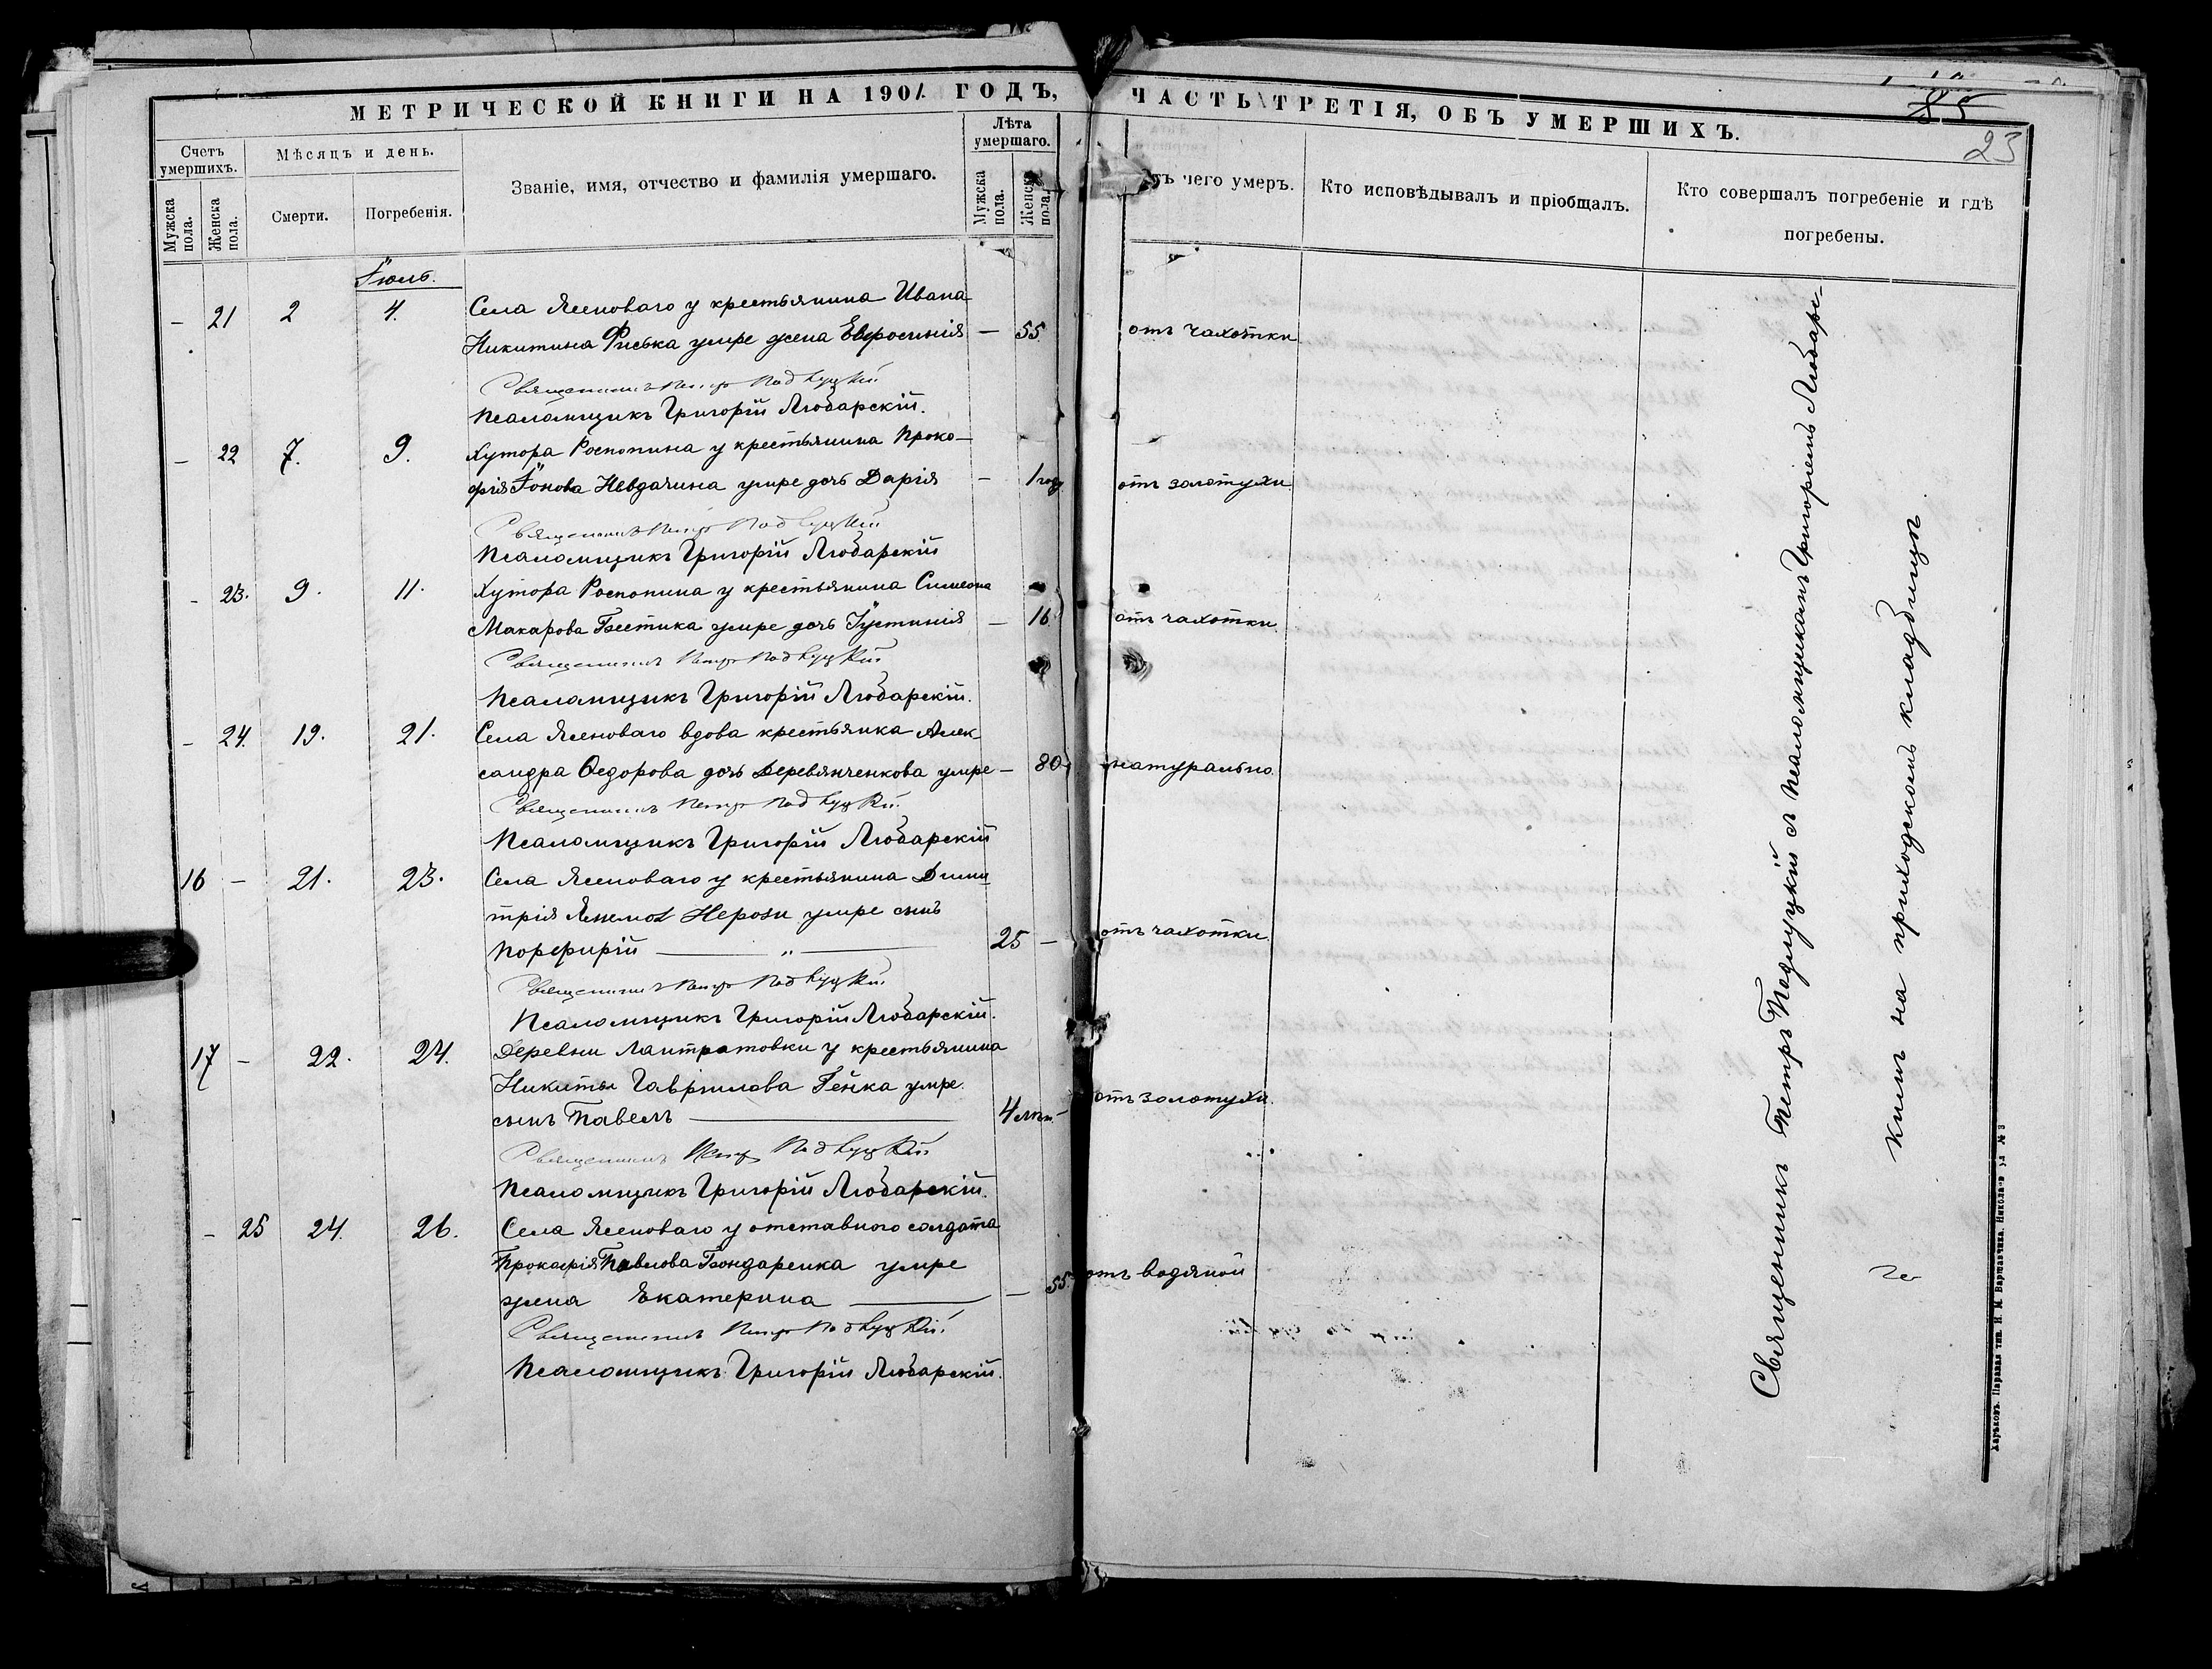 МЕТРИЧЕСКОЙ КНИГИ НА 1901 ГОДЪ,
Счетъ умершихъ.
Мужска пола.
Женска пола.
Мѣсяцъ и день.
Смерти.
Погребенія.
Званіе, имя, отчество и фамилія умершаго.
Лѣта умершаго.
Мужска пола.
Женска пола.
Іюль.
– 21 2 4. Села Ясеноваго у крестьянина Ивана
Никитина Фиська умре жена Евфросинія – 55.
Священникъ Петръ Подлуцкій
Псаломщикъ Григорій Любарскій.
– 22 7. 9. Хутора Роспопина у крестьянина Проко-
фія Іонова Невдачина умре дочь Дарія – 1 году
Священникъ Петръ Подлуцкій
Псаломщикъ Григорій Любарскій
– 23. 9. 11. Хутора Роспопина у крестьянина Симеона
Макарова Бестика умре дочь Іустинія – 16.
Священникъ Петръ Подлуцкій
Псаломщикъ Григорій Любарскій.
– 24. 19. 21. Села Ясеноваго вдова крестьянка Алек-
сандра Ѳедорова дочь Деревянченкова умре – 80
Священникъ Петръ Подлуцкій.
Псаломщикъ Григорій Любарскій
16 – 21. 23. Села Ясеноваго у крестьянина Дими-
трія Нерози умре сынъ
Порфирій 25 –
Священникъ Петръ Подлуцкій.
Псаломщикъ Григорій Любарскій.
17 – 22. 24. Деревни Лантратовки у крестьянина
Никиты Гавріилова Генка умре
сынъ Павелъ 4 лѣт. –
Священникъ Петръ Подлуцкій
Псаломщикъ Григорій Любарскій.
– 25 24. 26. Села Ясеноваго у отставного солдата
Прокофія Павлова Бондаренка умре
жена Екатерина – 55.
Священникъ Петръ Подлуцкій.
Псаломщикъ Григорій Любарскій.
ЧАСТЬ ТРЕТІЯ, ОБЪ УМЕРШИХЪ.
85
23
тъ чего умеръ.
Кто исповѣдывалъ и пріобщалъ.
Кто совершалъ погребеніе и гдѣ
погребены.
отъ чахотки
отъ золотухи.
отъ чахотки.
натурально.
отъ чахотки.
отъ золотухи.
отъ водяной
Священникъ Петръ Подлуцкій съ псаломщикомъ Григоріемъ Любарс-
кимъ на приходскомъ кладбищѣ.
Харьковъ. Паровая тип. И. М. Варшавчика. Николаев. ул. № 3